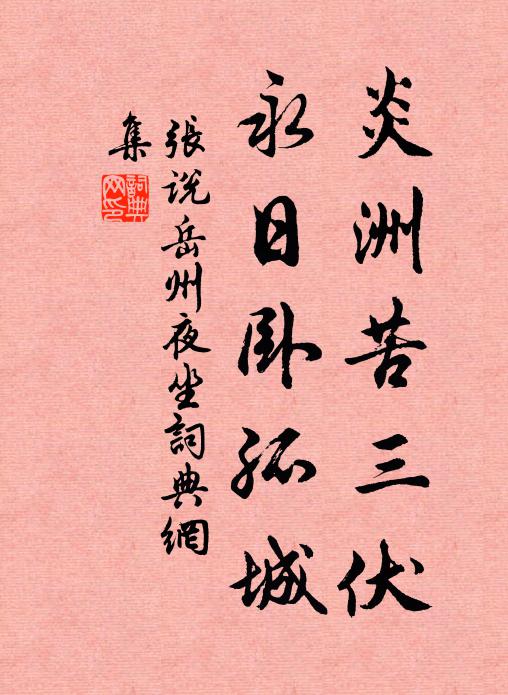 炎洲苦三伏
永日卧孤城
張説岳州夜坐詞典網
集
詞典
网印